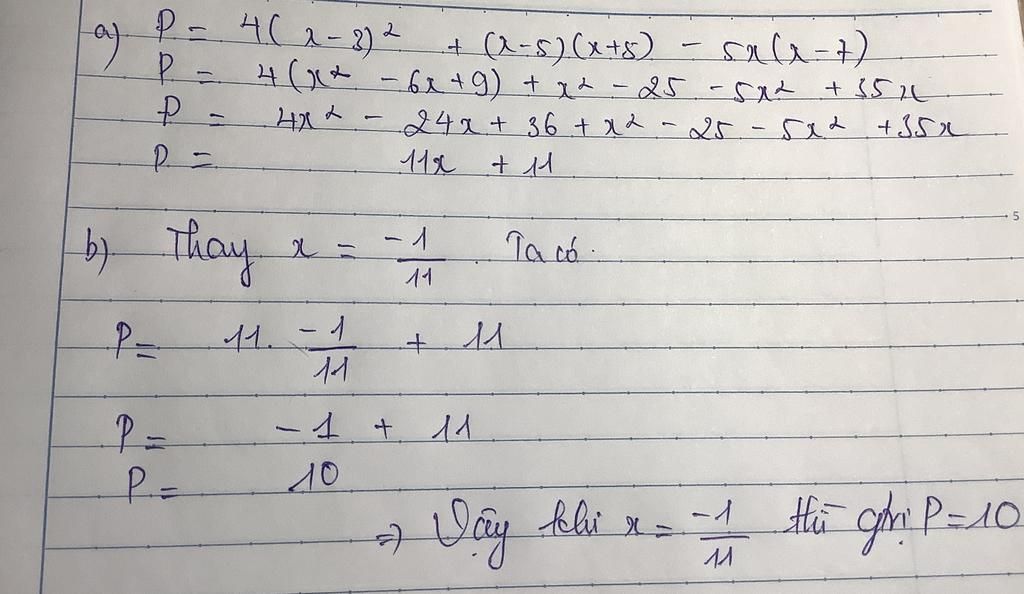 a) P = 4(x-3)² + (x-5)(x+5) - 5x(x-7)
P = 4(x² - 6x+9) + x² - 25 - 5x² + 35x
P = 4x² - 24x + 36 + x² - 25 - 5x² + 35x
P = 11x + 11
5
b) Thay x = -1/11. Ta có.
P = 11. -1/11 + 11
P = -1 + 11
P = 10
=> Vậy khi x = -1/11 thì gtrị P = 10